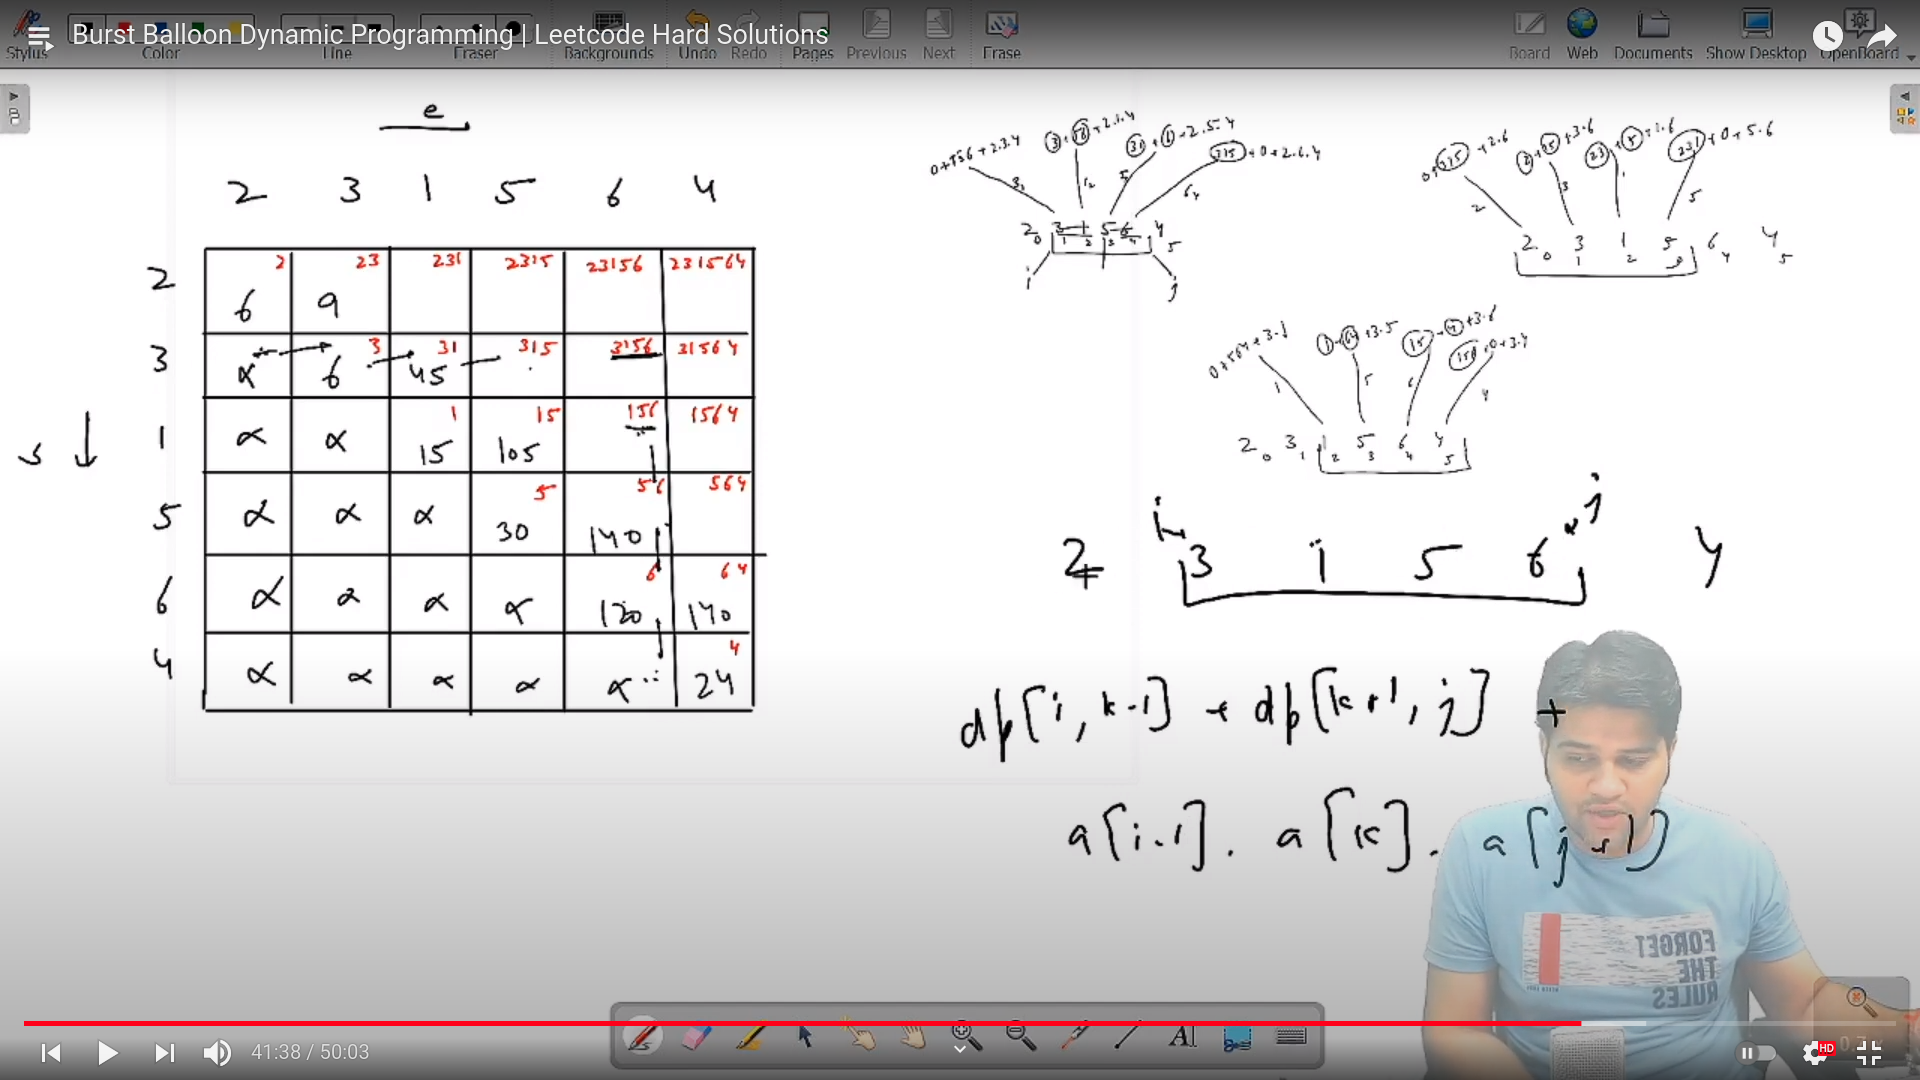 Burst Balloon Dynamic Programming | Leetcode Hard Solutions
Stylus Color Line Eraser Backgrounds Undo Redo Pages Previous Next Erase Board Web Documents Show Desktop OpenBoard
e
2 3 1 5 6 4
2 2 23 231 2315 23156 231564
6 9
3 3 31 315 3156 31564
α 6 45
s 1 1 15 156 1564
α α 15 105
5 5 56 564
α α α 30 140
6 6 64
α α α α 120 140
4 4
α α α α α 24
0+156+2.3.4 +2.1.4 31+1+2.5.4 315+0+2.6.4
2 3 1 5 6 4
0 1 2 3 4 5
i j
+2.6 +3.6 23+5+1.6 231+0+5.6
2 3 1 5
2 3 1 5 6 4
0 1 2 3 4 5
0+564+3.1 1+64+3.5 15+4+3.6 156+0+3.4
1 5 6 4
2 3 1 5 6 4
0 1 2 3 4 5
i j
2 3 1 5 6 4
dp[i, k-1] + dp[k+1, j] +
a[i-1] . a[k] . a[j+1]
FORGET
THE
RULES
41:38 / 50:03
HD